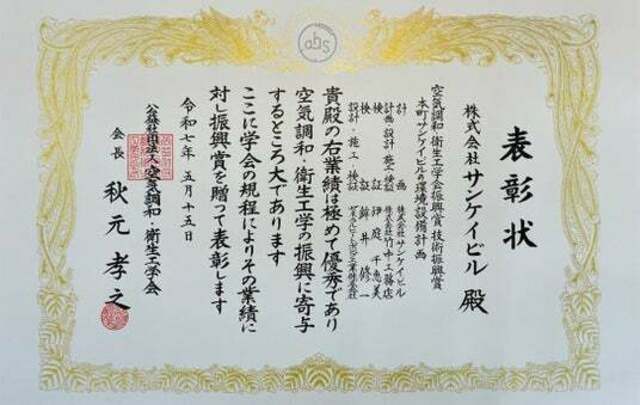 表彰状
株式会社サンケイビル 殿
空気調和・衛生工学会振興賞技術振興賞
本町サンケイビルの環境設備計画
計画 株式会社サンケイビル
計画・設計・施工・検証 株式会社竹中工務店
検証 伊庭 千恵美
検証 鉾井 修一
設計・施工・検証
貴殿の右業績は極めて優秀であり
空気調和・衛生工学の振興に寄与
するところ大であります
ここに学会の規程によりその業績に
対し振興賞を贈って表彰します
令和七年五月十五日
公益社団法人空気調和・衛生工学会
会長 秋元孝之